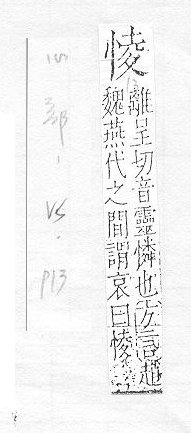 㥄
離呈切音靈憐也方言趙
魏燕代之間謂哀曰㥄
心
部
VS
P13